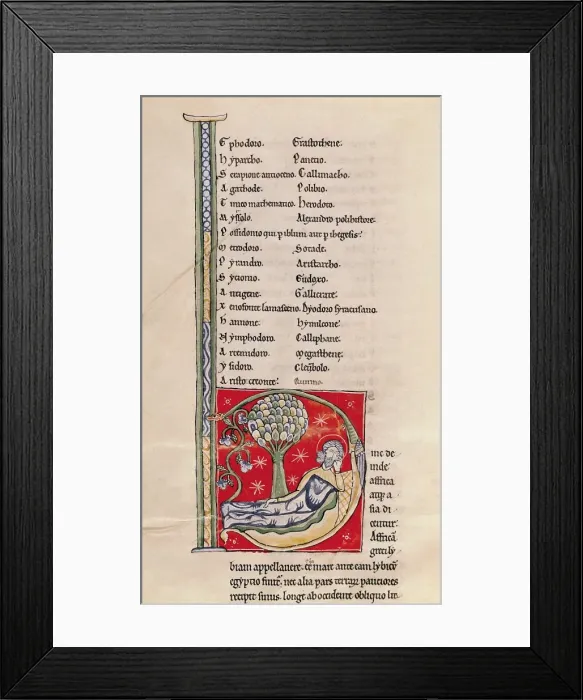 Ephodoro. Erastothene.
hyparcho. Panetio.
Serapione antioceno. Callimacho.
Agathode. Polibio.
Timeo mathematico. herodoro.
Myssolo. Alexandro polihistore.
Possidonio qui p iblum aut p ihegesis.
Metrodoro. Sotade.
Pyrandro. Aristarcho.
Sytomo. Eudoxo.
Antigene. Gallicrate.
Xenofonte lamasceno. Dyodoro syracusano.
hannone. hymilcone.
Nymphodoro. Calliphane.
Artemidoro. Megasthene.
ysidoro. Cleobolo.
Aristocreonte.
inc de
inde
affrica
atq; a
sia di
cuntur.
Affricā
greci ly
biam appellauere. & mare ante eam lybicū
egyptio finit; nec alia pars terrarum pauciores
recipit sinus. longe ab occidente obliquo lit